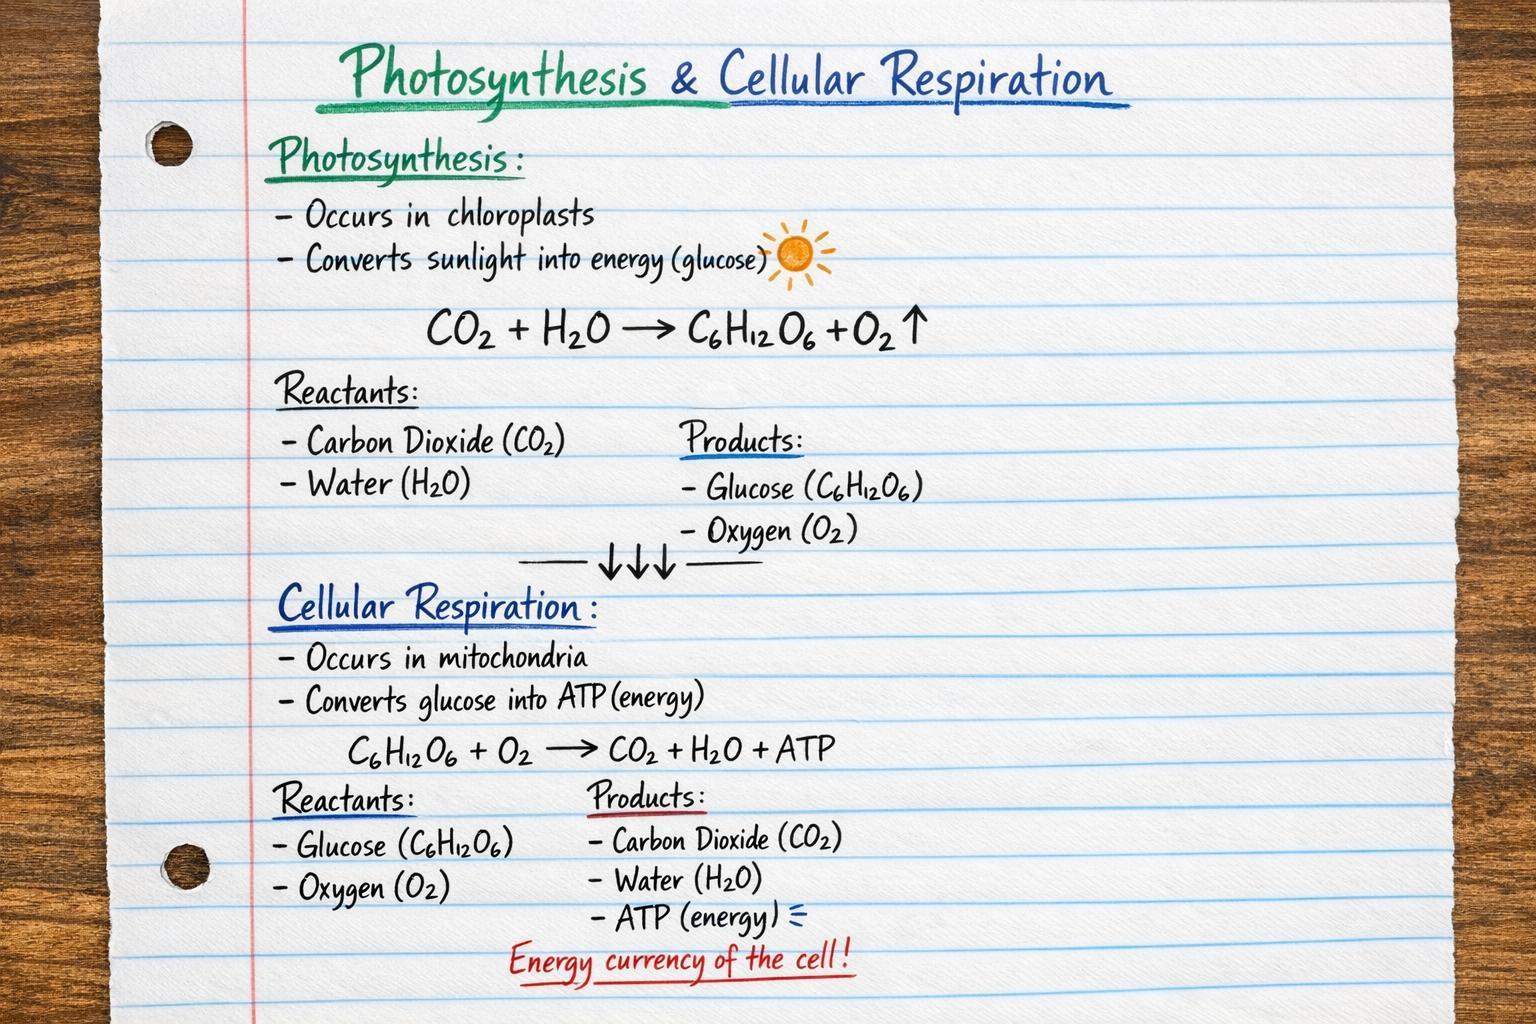 Photosynthesis & Cellular Respiration
Photosynthesis:
- Occurs in chloroplasts
- Converts sunlight into energy (glucose)
CO₂ + H₂O → C₆H₁₂O₆ + O₂ ↑
Reactants:
- Carbon Dioxide (CO₂)
- Water (H₂O)
Products:
- Glucose (C₆H₁₂O₆)
- Oxygen (O₂)
↓↓↓
Cellular Respiration:
- Occurs in mitochondria
- Converts glucose into ATP (energy)
C₆H₁₂O₆ + O₂ → CO₂ + H₂O + ATP
Reactants:
- Glucose (C₆H₁₂O₆)
- Oxygen (O₂)
Products:
- Carbon Dioxide (CO₂)
- Water (H₂O)
- ATP (energy)
Energy currency of the cell!